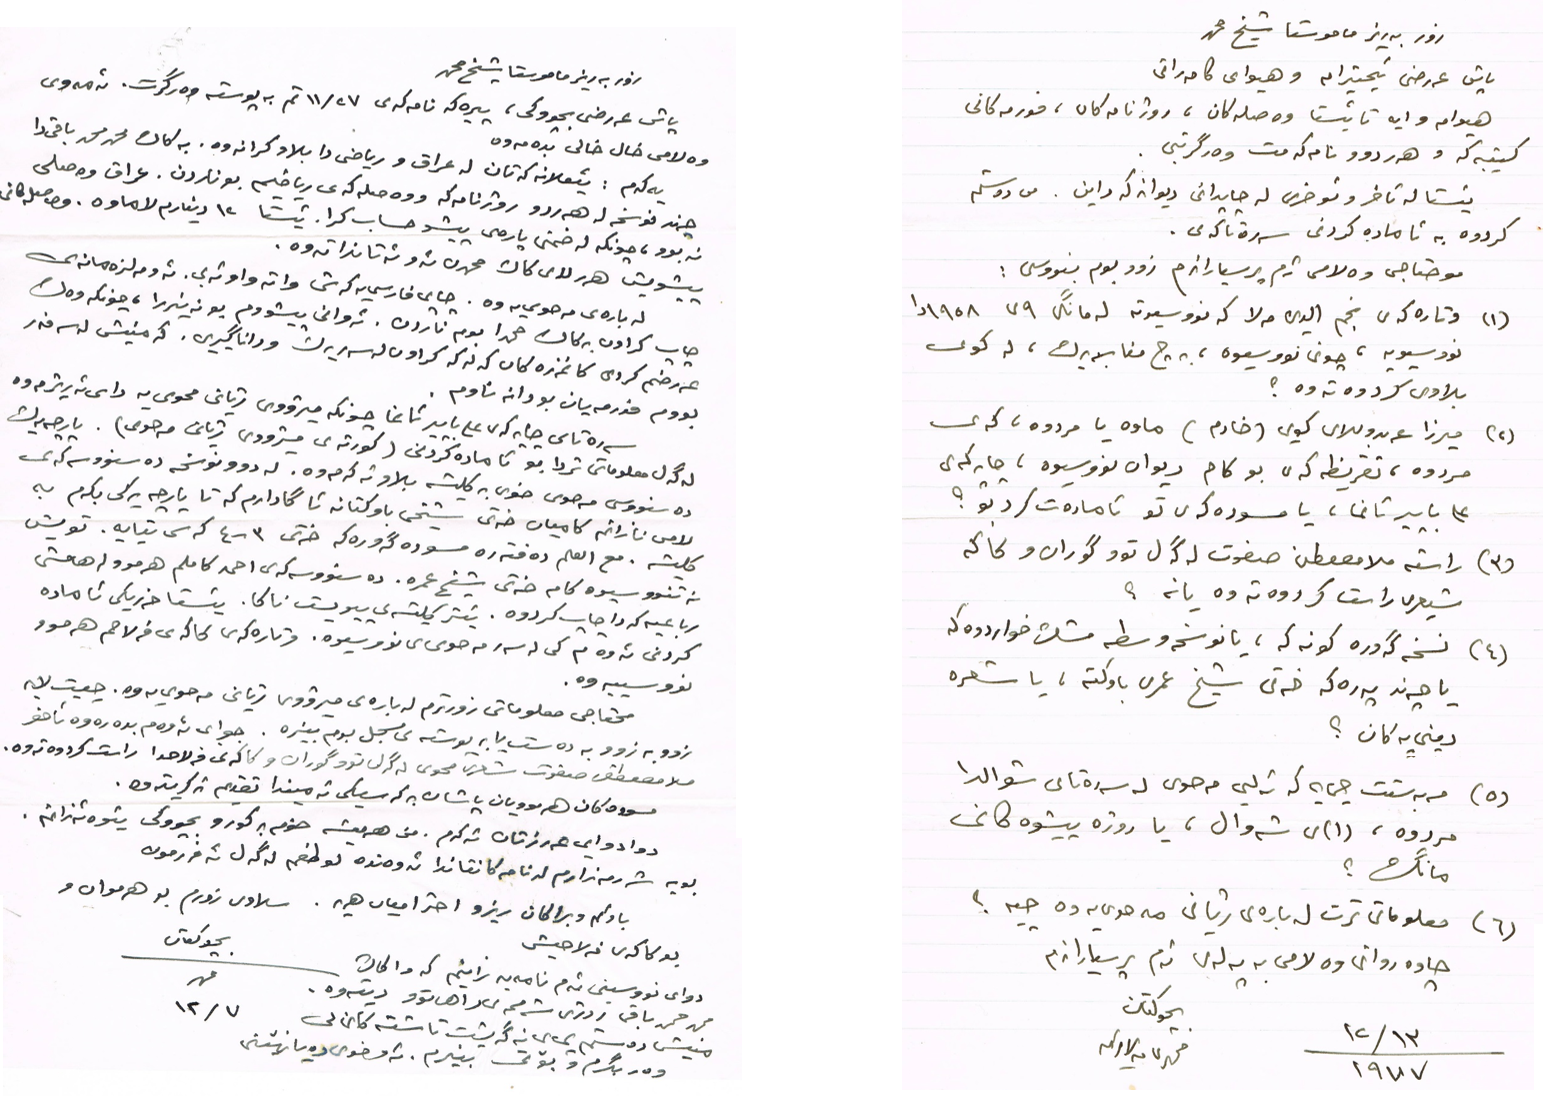 زۆر بەڕێز مامۆستا شێخ محمد
پاش عەرضی بچووکی، بیرەکە نامەکەی ١١/٢٧ تم بە پۆستە وەرگرت. ئەمەوێ
وەلامی خال خالی بدەمەوە
یەکەم: ئیعلانەکەتان لە عراق و ریاضی دا بلاوکرانەوە. بە کاک محمد محمد باقی دا
چند نوسخە لە هەردوو رۆژنامەکە و وەصلەکەی ریاضیم بۆ ناردن. عراق وەصلی
نەبوو، چونکە لە ضمنی پارەی پێشو حساب کرا. ئێستا ١٢ دینارم لا ماوە. وەصلەکانی
پێشویش هەر لای کاک محمدن ئەو ئەتانداتەوە.
لە بارەی مەحوی یەوە. چاپی فارسی یەکەشی واتەواو ئەبێ. ئەو مەلزەمانەی
چاپ کراون بە کاک حمدا بۆم ناردن. ئەوانی پێشوودم بۆ نەنێررا، چونکە وەک
عەرضم کردی کاغەزەکان کە لەکە کراون لەسەریەک و داناگیرێ. کە منیش لە سەفەر
بووم فۆرمەیان بۆ دانەناوم.
سەرەتای چاپەکەی علی باپیر ئاغا چونکە مێژووی ژیانی محوی یە دای ئەڕێژمەوە
لەگەل معلوماتی تردا بۆ ئامادەکردنی (کورتەی مێژووی ژیانی مەحوی). پارچەیەک
دەسنووسی مەحوی خۆی بە کلیشە بلاو ئەکەمەوە. لە دوو نوسخە دەسنووسەکەی
لامی نازانم کامیان خەتی شێخی باوکتانە ئاگادارم کە تا پارچەیەکی بکەم بە
کلیشە. مع العلم دەفتەرە مسودە گەورەکە خەتی ٣-٤ کەسی تیایە. تۆیش
نەتنووسیوە کامە خەتی شێخ عمرە. دەسنووسەکەی احمد کاملم هەموو لە هامشی
رباعیەکەدا چاپ کردوە. ئیتر کلیشەی پێویست ناکا. ئێستا خەریکی ئامادە
کردنی ئەوەم کێ لەسەر مەحوی ی نووسیوە. وتارەکەی کاکەی فەلاحم هەموو
نووسییەوە.
محتاجی معلوماتی زۆرترم لە بارەی مێژووی ژیانی مەحوی یەوە. چیت لایە
زوو بە زوو بە دەست یا بە پۆستەی مسجل بۆم بنێرە. جوابی ئەوەم بدەرەوە ئاخۆ
مەلا مصطفی صفوت شعری محوی لەگەل تۆو گۆران و کاکەی فەلاحدا راست کردووەتەوە.
مسودەکان هەموویان پاشان بە کەسێکی ئەمیندا تقدیم ئەکرێتەوە.
دوا دوایی عەرزتان ئەکەم. من هەمیشە خۆم بە کوڕ و بچووکی ئێوە ئەزانم.
بۆیە شەرمەزارم لە نامەکانتاندا ئەوەندە لوطفم لەگەل ئەفەرموون
باوکم و براکان ڕێز و احترامیان هەیە. سلاوی زۆرم بۆ هەموان و
بۆ کاکەی فەلاحیش
بچوکتان
محمد
١٢/٧
دوای نووسینی ئەم نامەیە زانیم کە وا کاک
محمد محمد باقی زۆتری
منیش دەستم پێی نەگەیشت تا شتەکانی لێ
وەربگرم و بۆتی بنێرم.
زۆر بەڕێز مامۆستا شێخ محمد
پاش عەرضی ئیحتیرام و هیوای کامەرانی
هیوام وایە تا ئێستا وەصلەکان، رۆژنامەکان، فۆرمەکانی
کتێبەکە و هەردوو نامەکەمت وەرگرتبێ.
ئێستا لە ئاخر و ئۆخری لە چاپدانی دیوانەکەداین. من دەستم
کردوە بە ئامادەکردنی سەرەتاکەی.
موحتاجی وەلامی ئەم پرسیارانەم زوو بۆم بنووسی:
(١) وتارەکەی نجم الدین مەلا کە نووسیوتە لە مانگی ٩ی ١٩٥٨دا
نووسیویە، چۆنی نووسیوە، بە چ مقابەلەیەک، لە کوێ
بلاوی کردوەتەوە؟
(٢) میرزا عەبدوللای کۆیی (خادم) ماوە یا مردوە، کەی
مردوە، تقریظەکەی بۆ کام دیوان نووسیوە، چاپەکەی
علی باپیر ئاغا، یا مسودەکەی تۆ ئامادەت کردبوو؟
(٣) راستە مەلا مصطفی صفوت لەگەل تۆو گۆران و کاکە
شیعری راست کردوەتەوە یا نە؟
(٤) نسخە گەورە کۆنەکە، یا نوسخە وسطە مشک خواردوەکە
یا چەند پەڕەکە خەتی شێخ عمری باوکتە، یا شعرە
دینی یەکان؟
(٥) مەبەستت چی یە کە ئەلێی مەحوی لە سەرەتای شوالدا
مردوە، (١)ی شەوال، یا رۆژە پێشوەکانی
مانگ؟
(٦) معلوماتی ترت لە بارەی ژیانی مەحوی یەوە چیە؟
چاوەڕوانی وەلامی بە پەلەی ئەم پرسیارانەم
بچوکتان
محمدی مەلا کریم
١٢/١٣
١٩٨٧